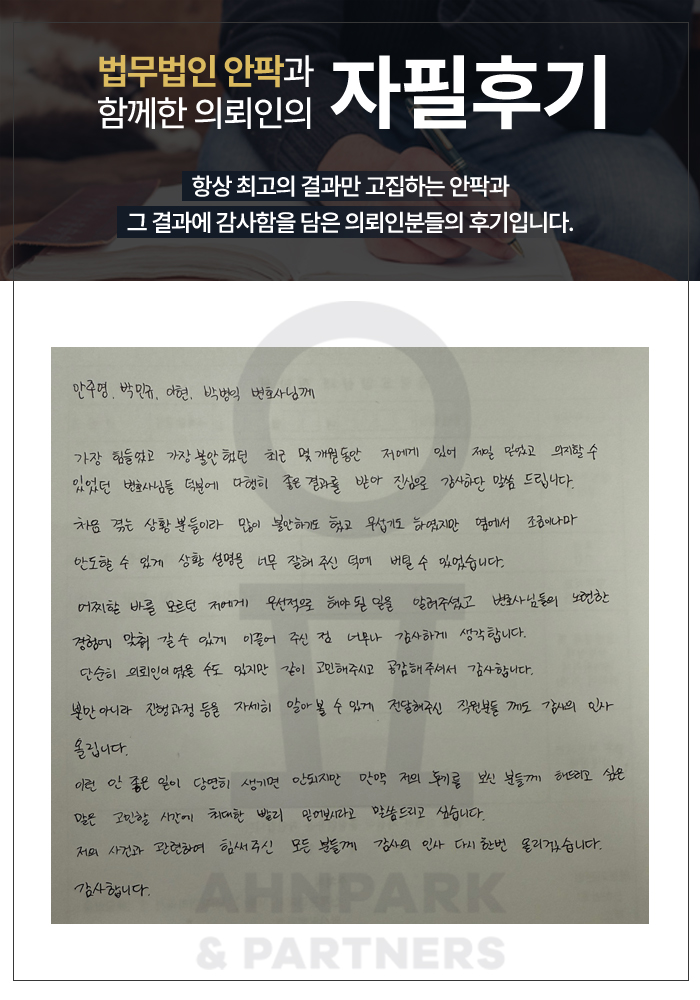 법무법인 안팍과
함께한 의뢰인의
자필후기
항상 최고의 결과만 고집하는 안팍과
그 결과에 감사함을 담은 의뢰인분들의 후기입니다.
안주영, 박민규, 이현, 박병익 변호사님께
가장 힘들었고 가장 불안했던 최근 몇 개월동안 저에게 있어 제일 믿었고 의지할 수
있었던 변호사님들 덕분에 다행히 좋은 결과를 받아 진심으로 감사하단 말씀 드립니다.
처음 겪는 상황분들이라 많이 불안하기도 했고 무섭기도 하였지만 옆에서 조금이나마
안도할 수 있게 상황 설명을 너무 잘해 주신 덕에 버틸 수 있었습니다.
어찌할 바를 모르던 저에게 우선적으로 해야 될 일을 알려주셨고 변호사님들의 노련한
경험에 맞춰 갈 수 있게 이끌어 주신 점 너무나 감사하게 생각합니다.
단순히 의뢰인이였을 수도 있지만 같이 고민해주시고 공감해주셔서 감사합니다.
뿐만 아니라 진행과정 등을 자세히 알아볼 수 있게 전달해주신 직원분들께도 감사의 인사
올립니다.
이런 안 좋은 일이 당연히 생기면 안되지만 만약 저의 후기를 보신 분들께 해드리고 싶은
말은 고민할 시간에 최대한 빨리 믿어보시라고 말씀드리고 싶습니다.
저의 사건과 관련하여 힘써주신 모든 분들께 감사의 인사 다시 한번 올리겠습니다.
감사합니다.
AHNPARK
& PARTNERS